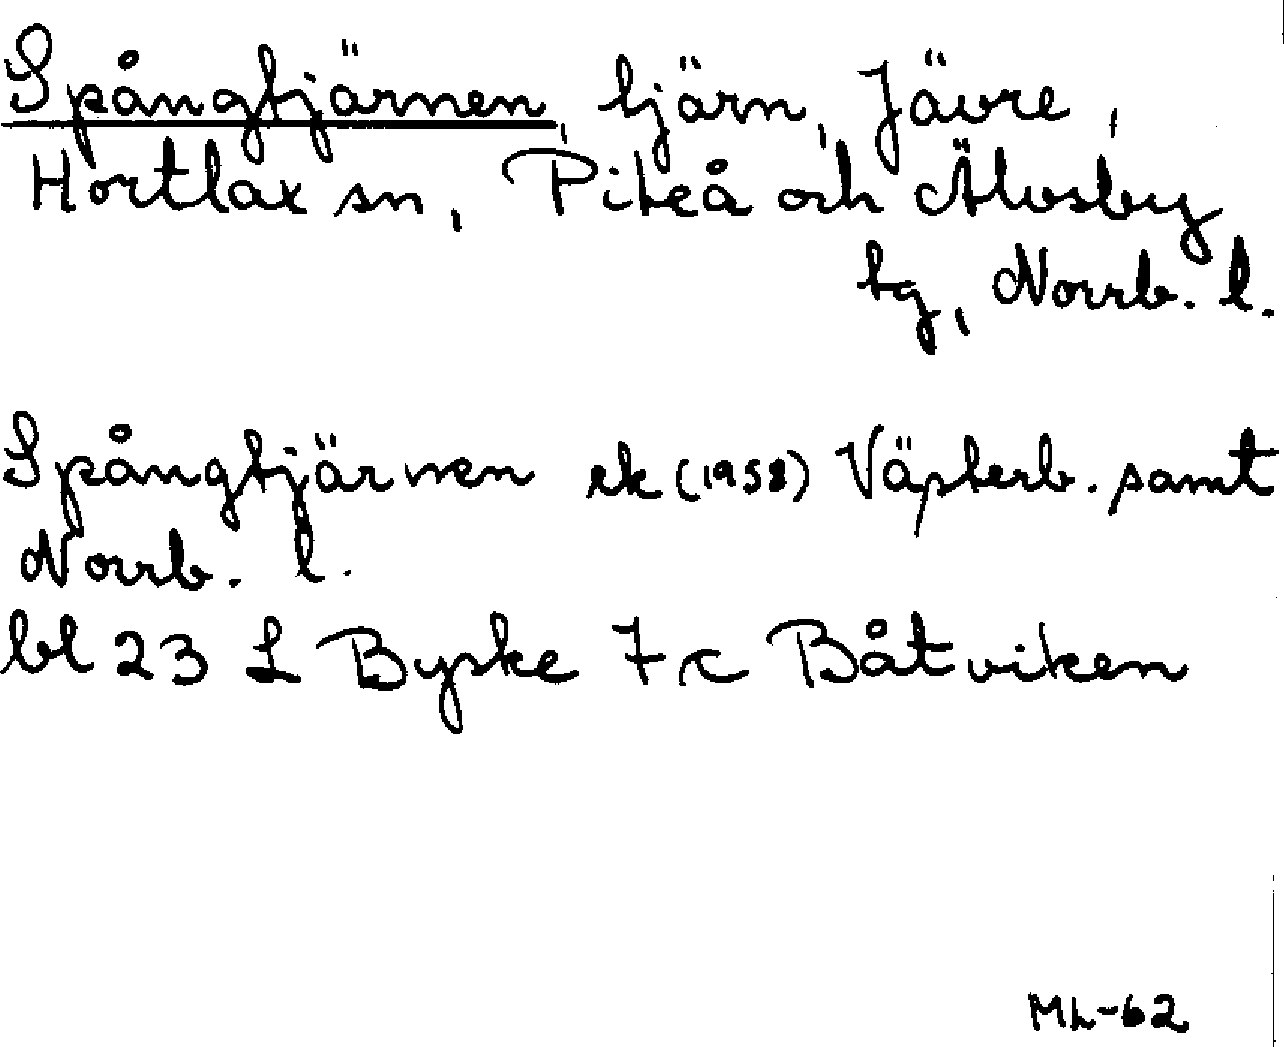 Spångtjärnen, tjärn, Jävre,
Hortlax sn, Piteå och Älvsby
tg, Norrb. l.
Spångtjärnen ek (1958) Västerb. samt
Norrb. l.
bl 23 L Byske 7c Båtviken
ML-62